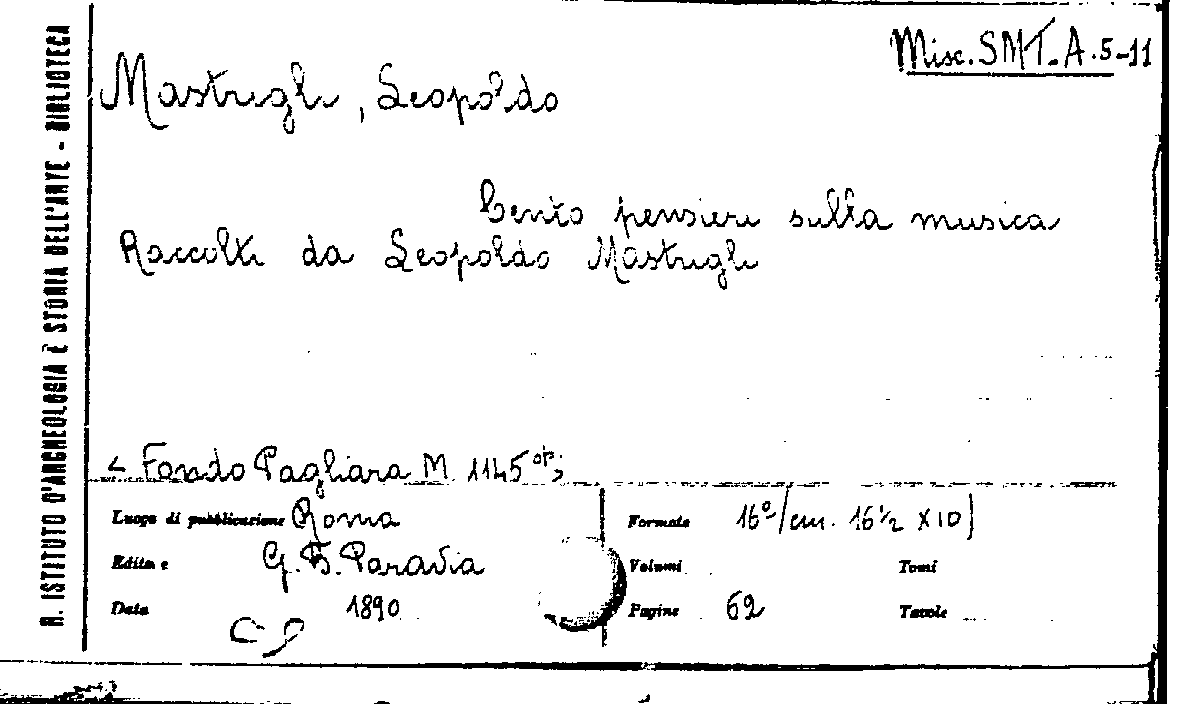 R. ISTITUTO D'ARCHEOLOGIA E STORIA DELL'ARTE - BIBLIOTECA
Misc. SMT. A. 5-11
Mastrigli, Leopoldo
Cento pensieri sulla musica
Raccolti da Leopoldo Mastrigli
Fondo Pagliara M 1145
Luogo di pubblicazione Roma
Formato 16º/cm. 16½ X 10)
Editore G. B. Paravia
Volumi
Tomi
Data 1890
Pagine 62
Tavole